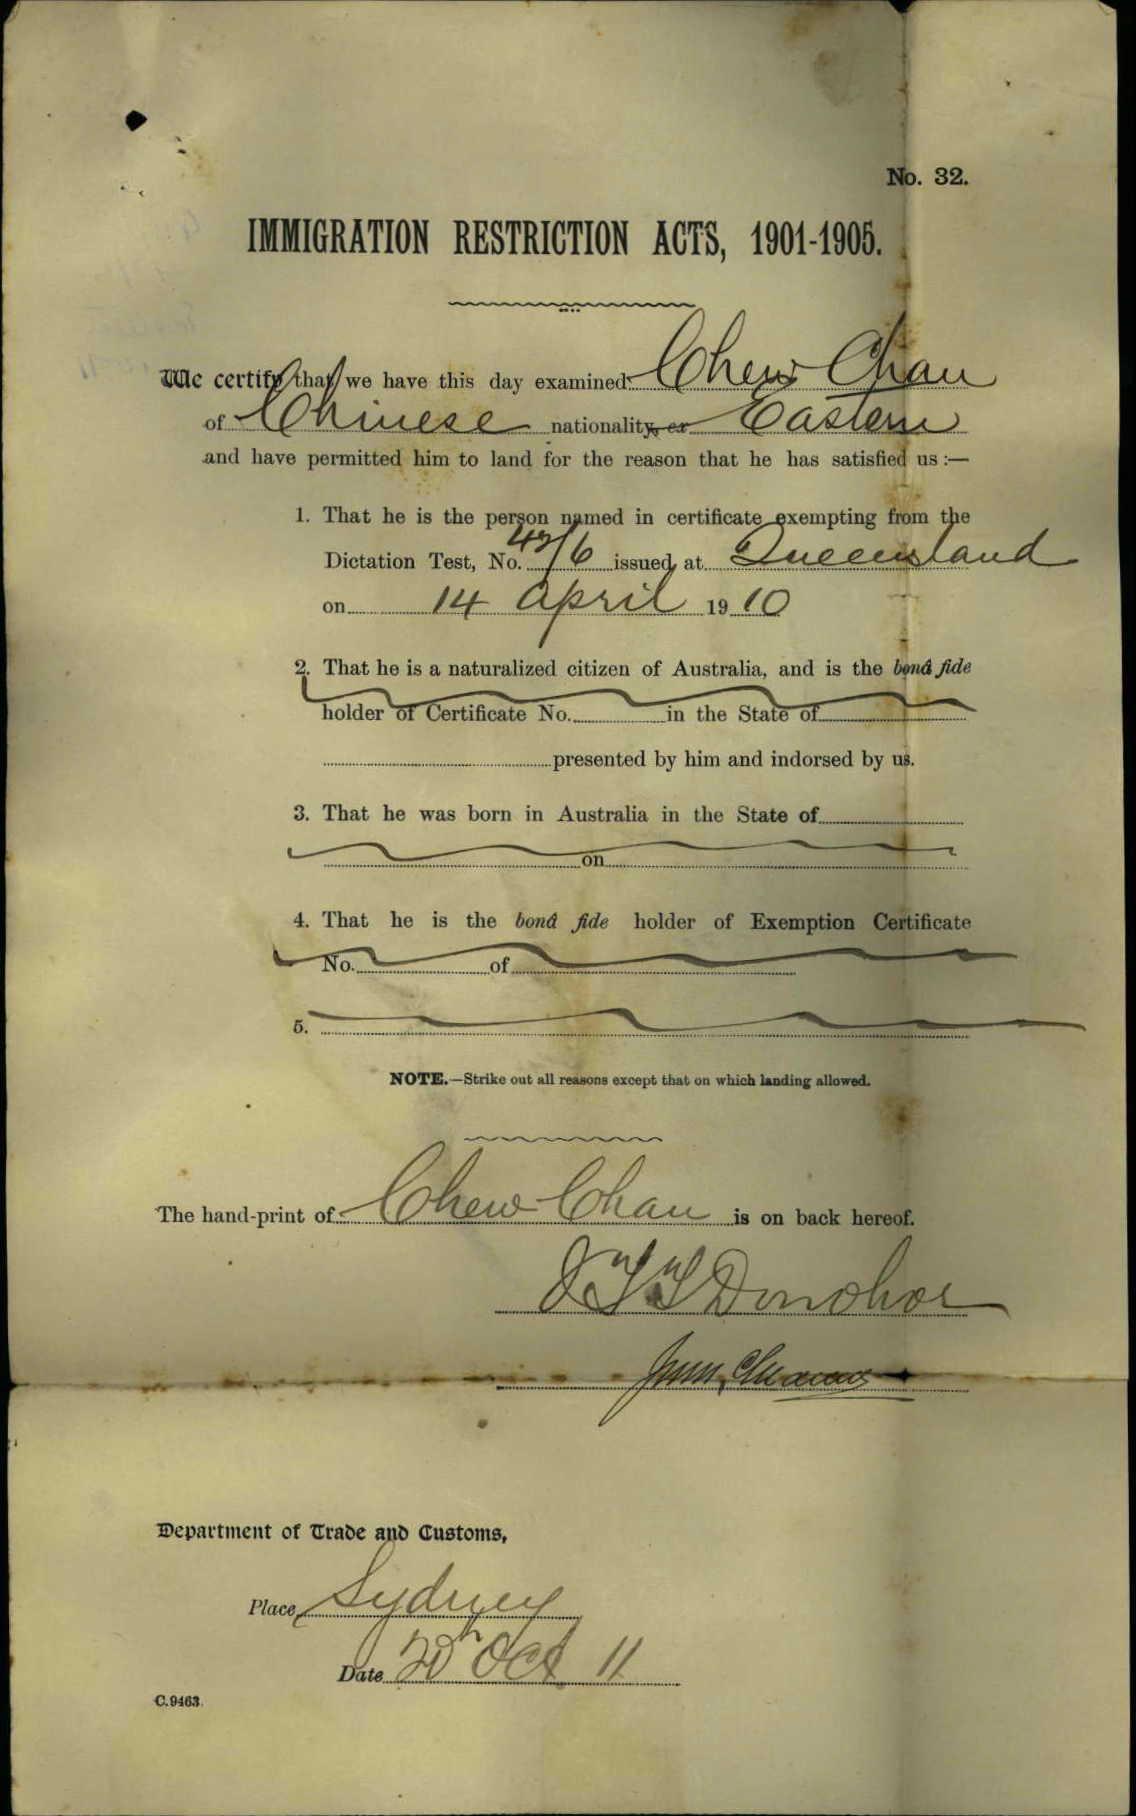 No. 32.
IMMIGRATION RESTRICTION ACTS, 1901-1905.
We certify that we have this day examined Chew Chan
of Chinese nationality, ex Eastern
and have permitted him to land for the reason that he has satisfied us :—
1. That he is the person named in certificate exempting from the
Dictation Test, No. issued at Queensland
on 14 April 1910
2. That he is a naturalized citizen of Australia, and is the bonâ fide
holder of Certificate No. in the State of
presented by him and indorsed by us.
3. That he was born in Australia in the State of
on
4. That he is the bonâ fide holder of Exemption Certificate
No. of
5.
NOTE.—Strike out all reasons except that on which landing allowed.
The hand-print of Chew Chan is on back hereof.
Donohoe
Department of Trade and Customs,
Place Sydney
Date 20th Oct 11
C.9463.